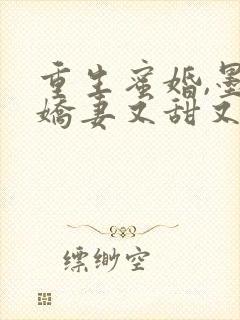 重生蜜婚,墨
娇妻又甜又
缥缈空